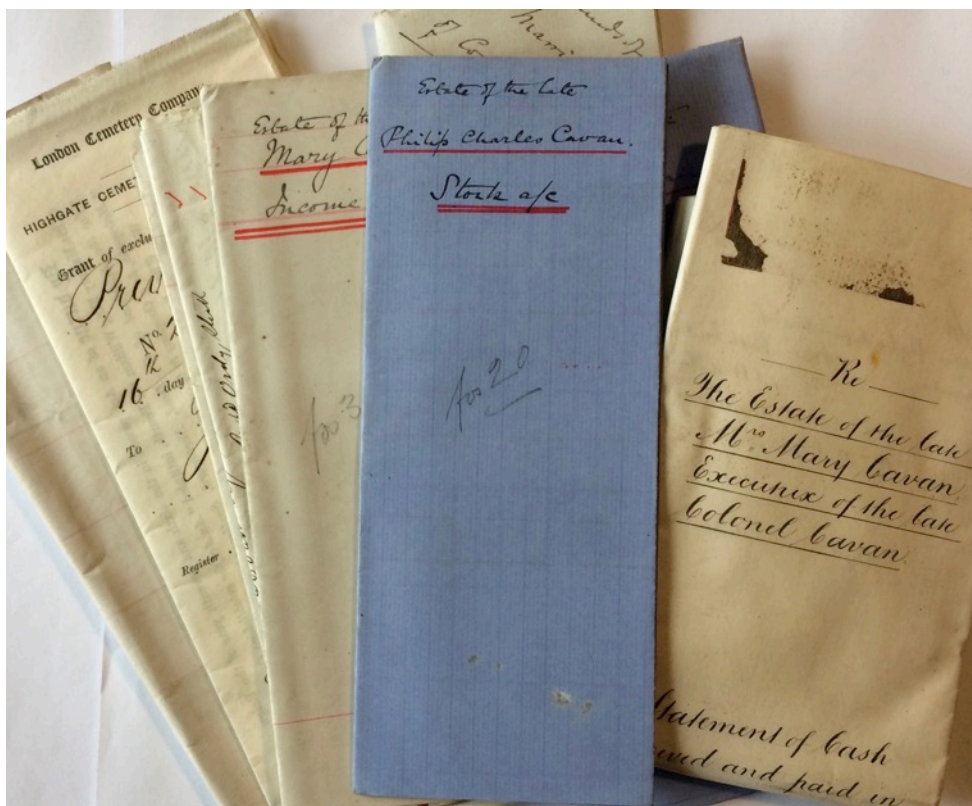 London Cemetery Compan
HIGHGATE CEMET
Grant of exclu
No. 2
16th day
To
Register
Estate of th
Mary C
Income
fos 3
of Co
Marri
Estate of the late
Philip Charles Cavan.
Stock a/c
fos 20
Re
The Estate of the late
Mrs. Mary Cavan,
Executrix of the late
Colonel Cavan.
Statement of Cash
eived and paid in